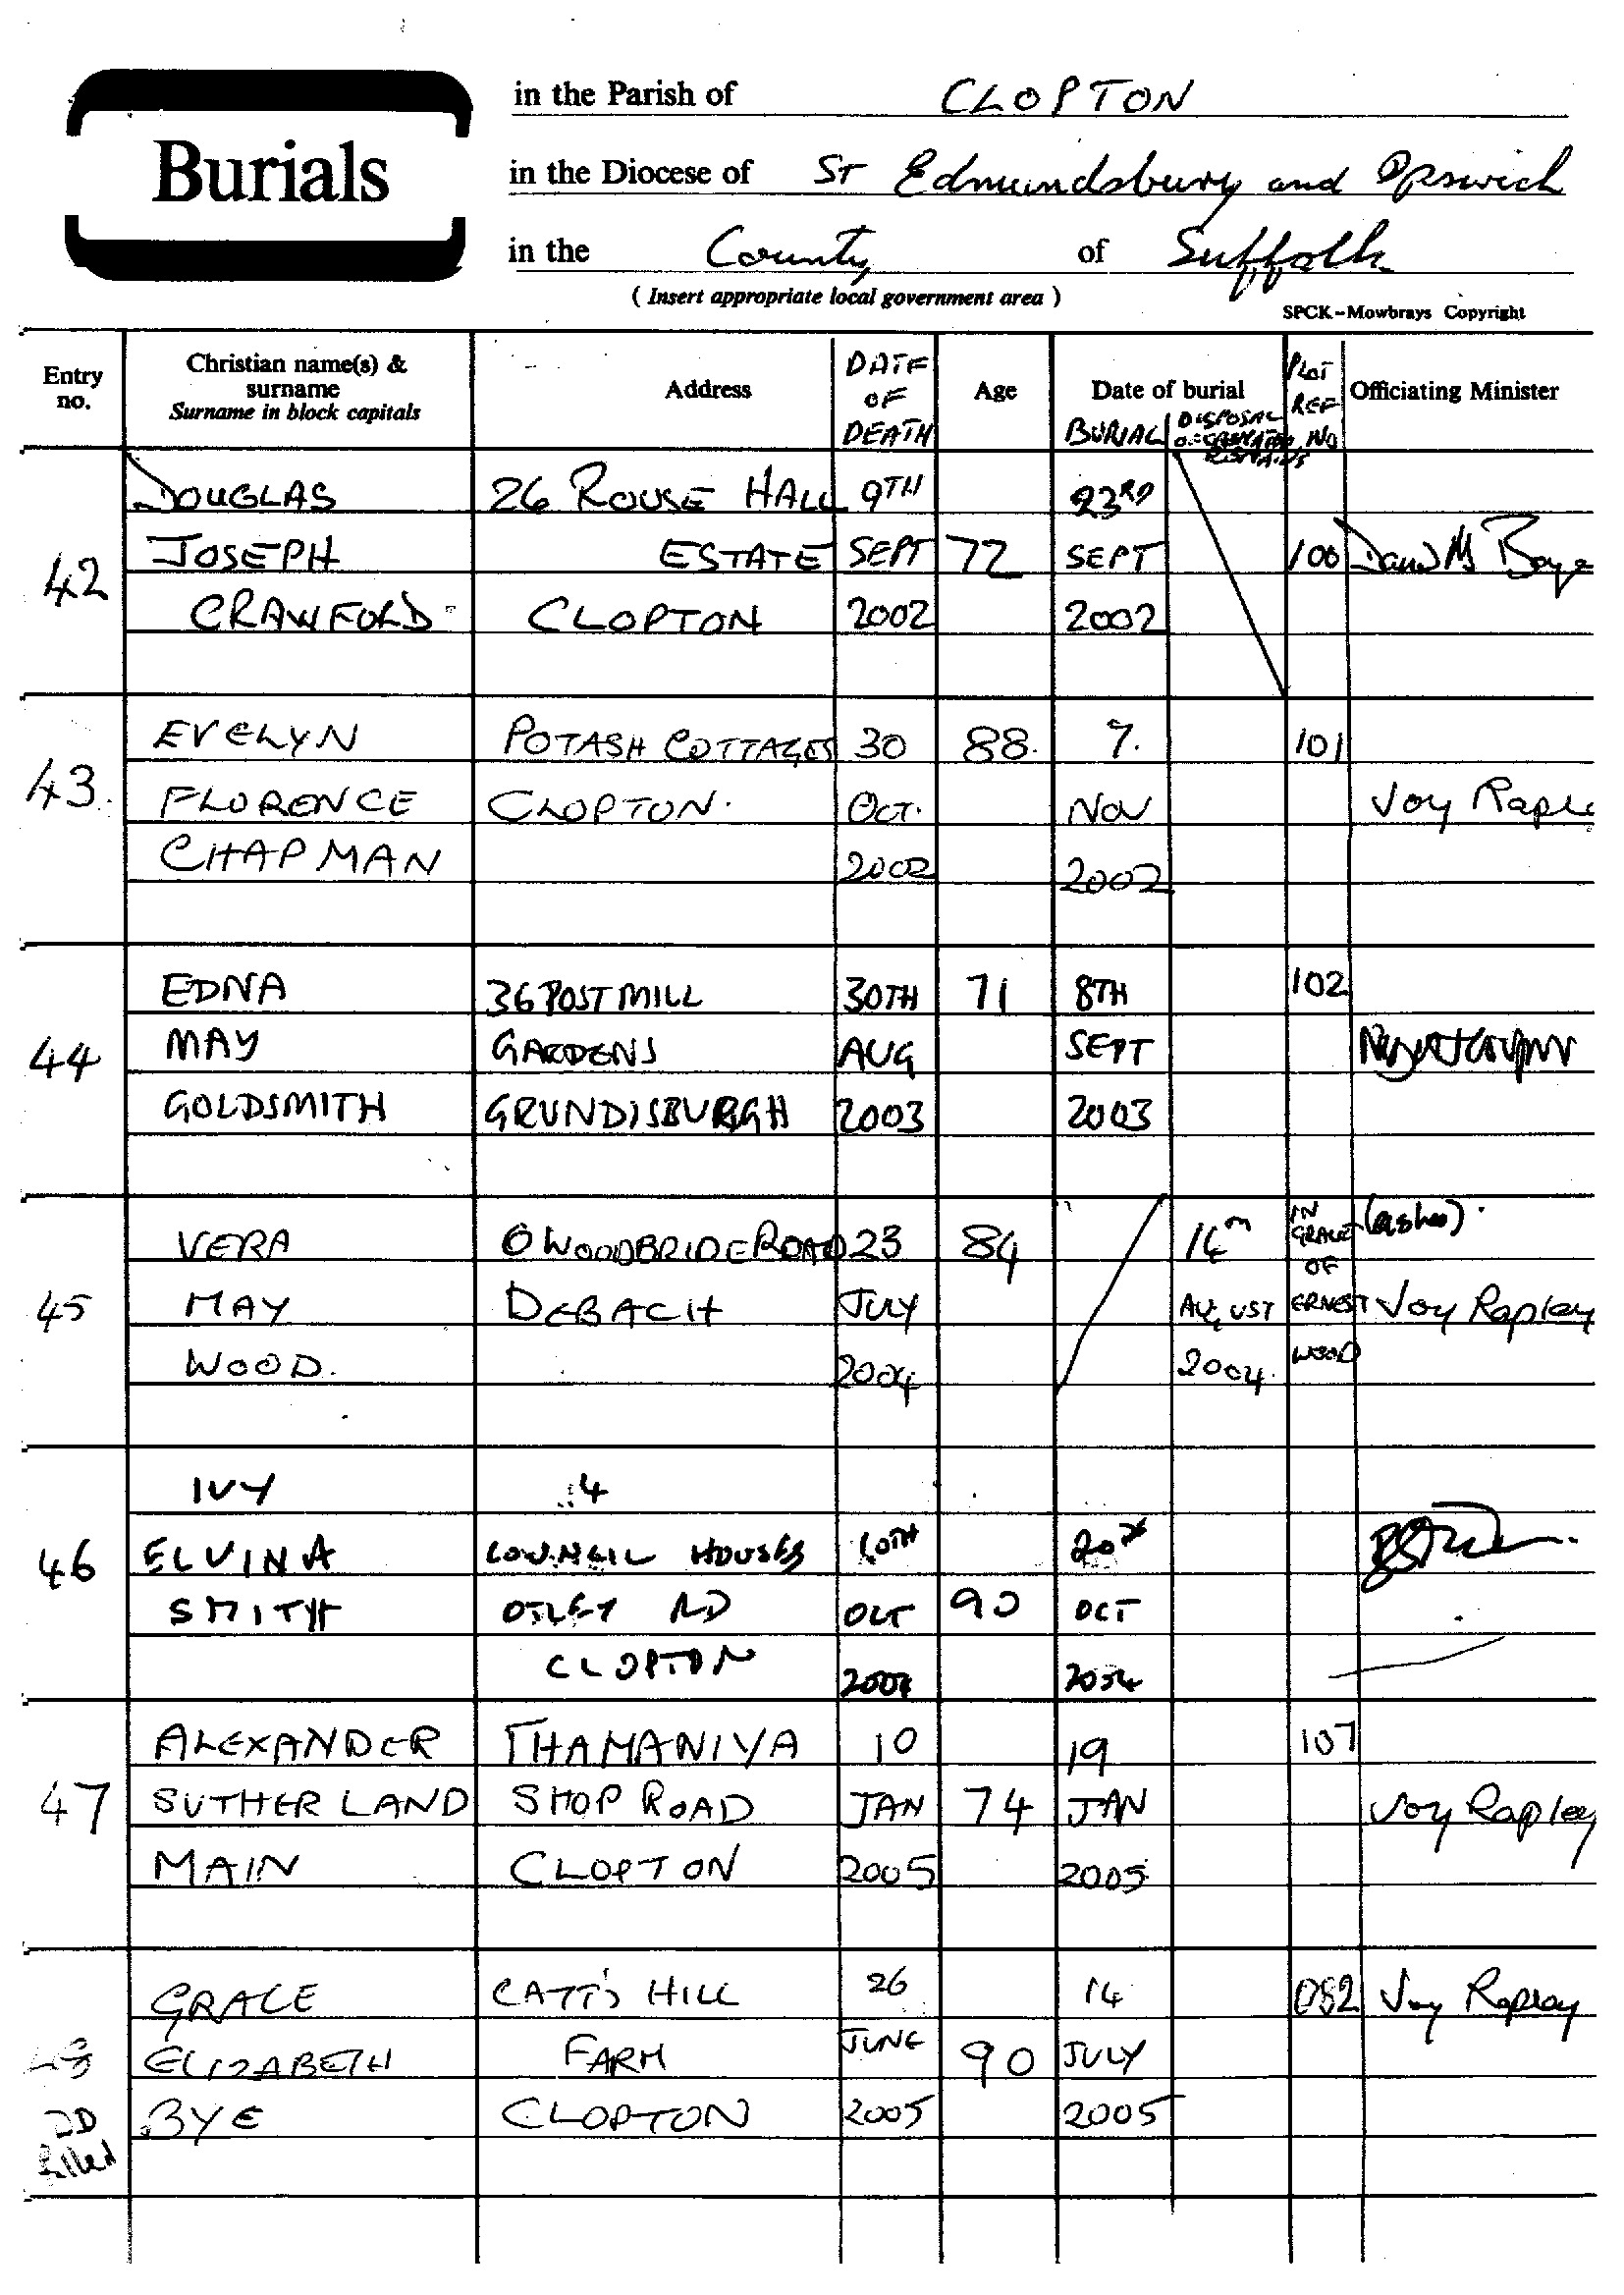 Burials
in the Parish of CLOPTON
in the Diocese of St Edmundsbury and Ipswich
in the County of Suffolk
( Insert appropriate local government area )
SPCK-Mowbrays Copyright
Entry no.
Christian name(s) & surname
Surname in block capitals
Address
DATE OF DEATH
Age
Date of burial
BURIAL
DISPOSAL OF CREMATED REMAINS
PLOT REF NO
Officiating Minister
DOUGLAS 26 ROUSE HALL 9TH 23RD
42 JOSEPH ESTATE SEPT 72 SEPT 100
CRAWFORD CLOPTON 2002 2002
EVELYN POTASH COTTAGES 30 88. 7. 101
43. FLORENCE CLOPTON. OCT. NOV Joy Raple
CHAPMAN 2002 2002
EDNA 36 POST MILL 30TH 71 8TH 102
44 MAY GARDENS AUG SEPT
GOLDSMITH GRUNDISBURGH 2003 2003
VERA WOODBRIDE ROAD 23 84 IN GRAVE OF (ashes).
45 MAY DEBACH JULY AUGUST ERNEST Joy Rapley
WOOD. 2004 2004. WOOD
IVY 4
46 ELVINA COUNCIL HOUSES 10TH 20th
SMITH OTLEY RD OCT 90 OCT
CLOPTON 2004 2004
ALEXANDER THAMANIYA 10 19 107
47 SUTHERLAND SHOP ROAD JAN 74 JAN Joy Rapley
MAIN CLOPTON 2005 2005
GRACE CATT'S HILL 26 14 052 Joy Rapley
48 ELIZABETH FARM JUNE 90 JULY
BYE CLOPTON 2005 2005